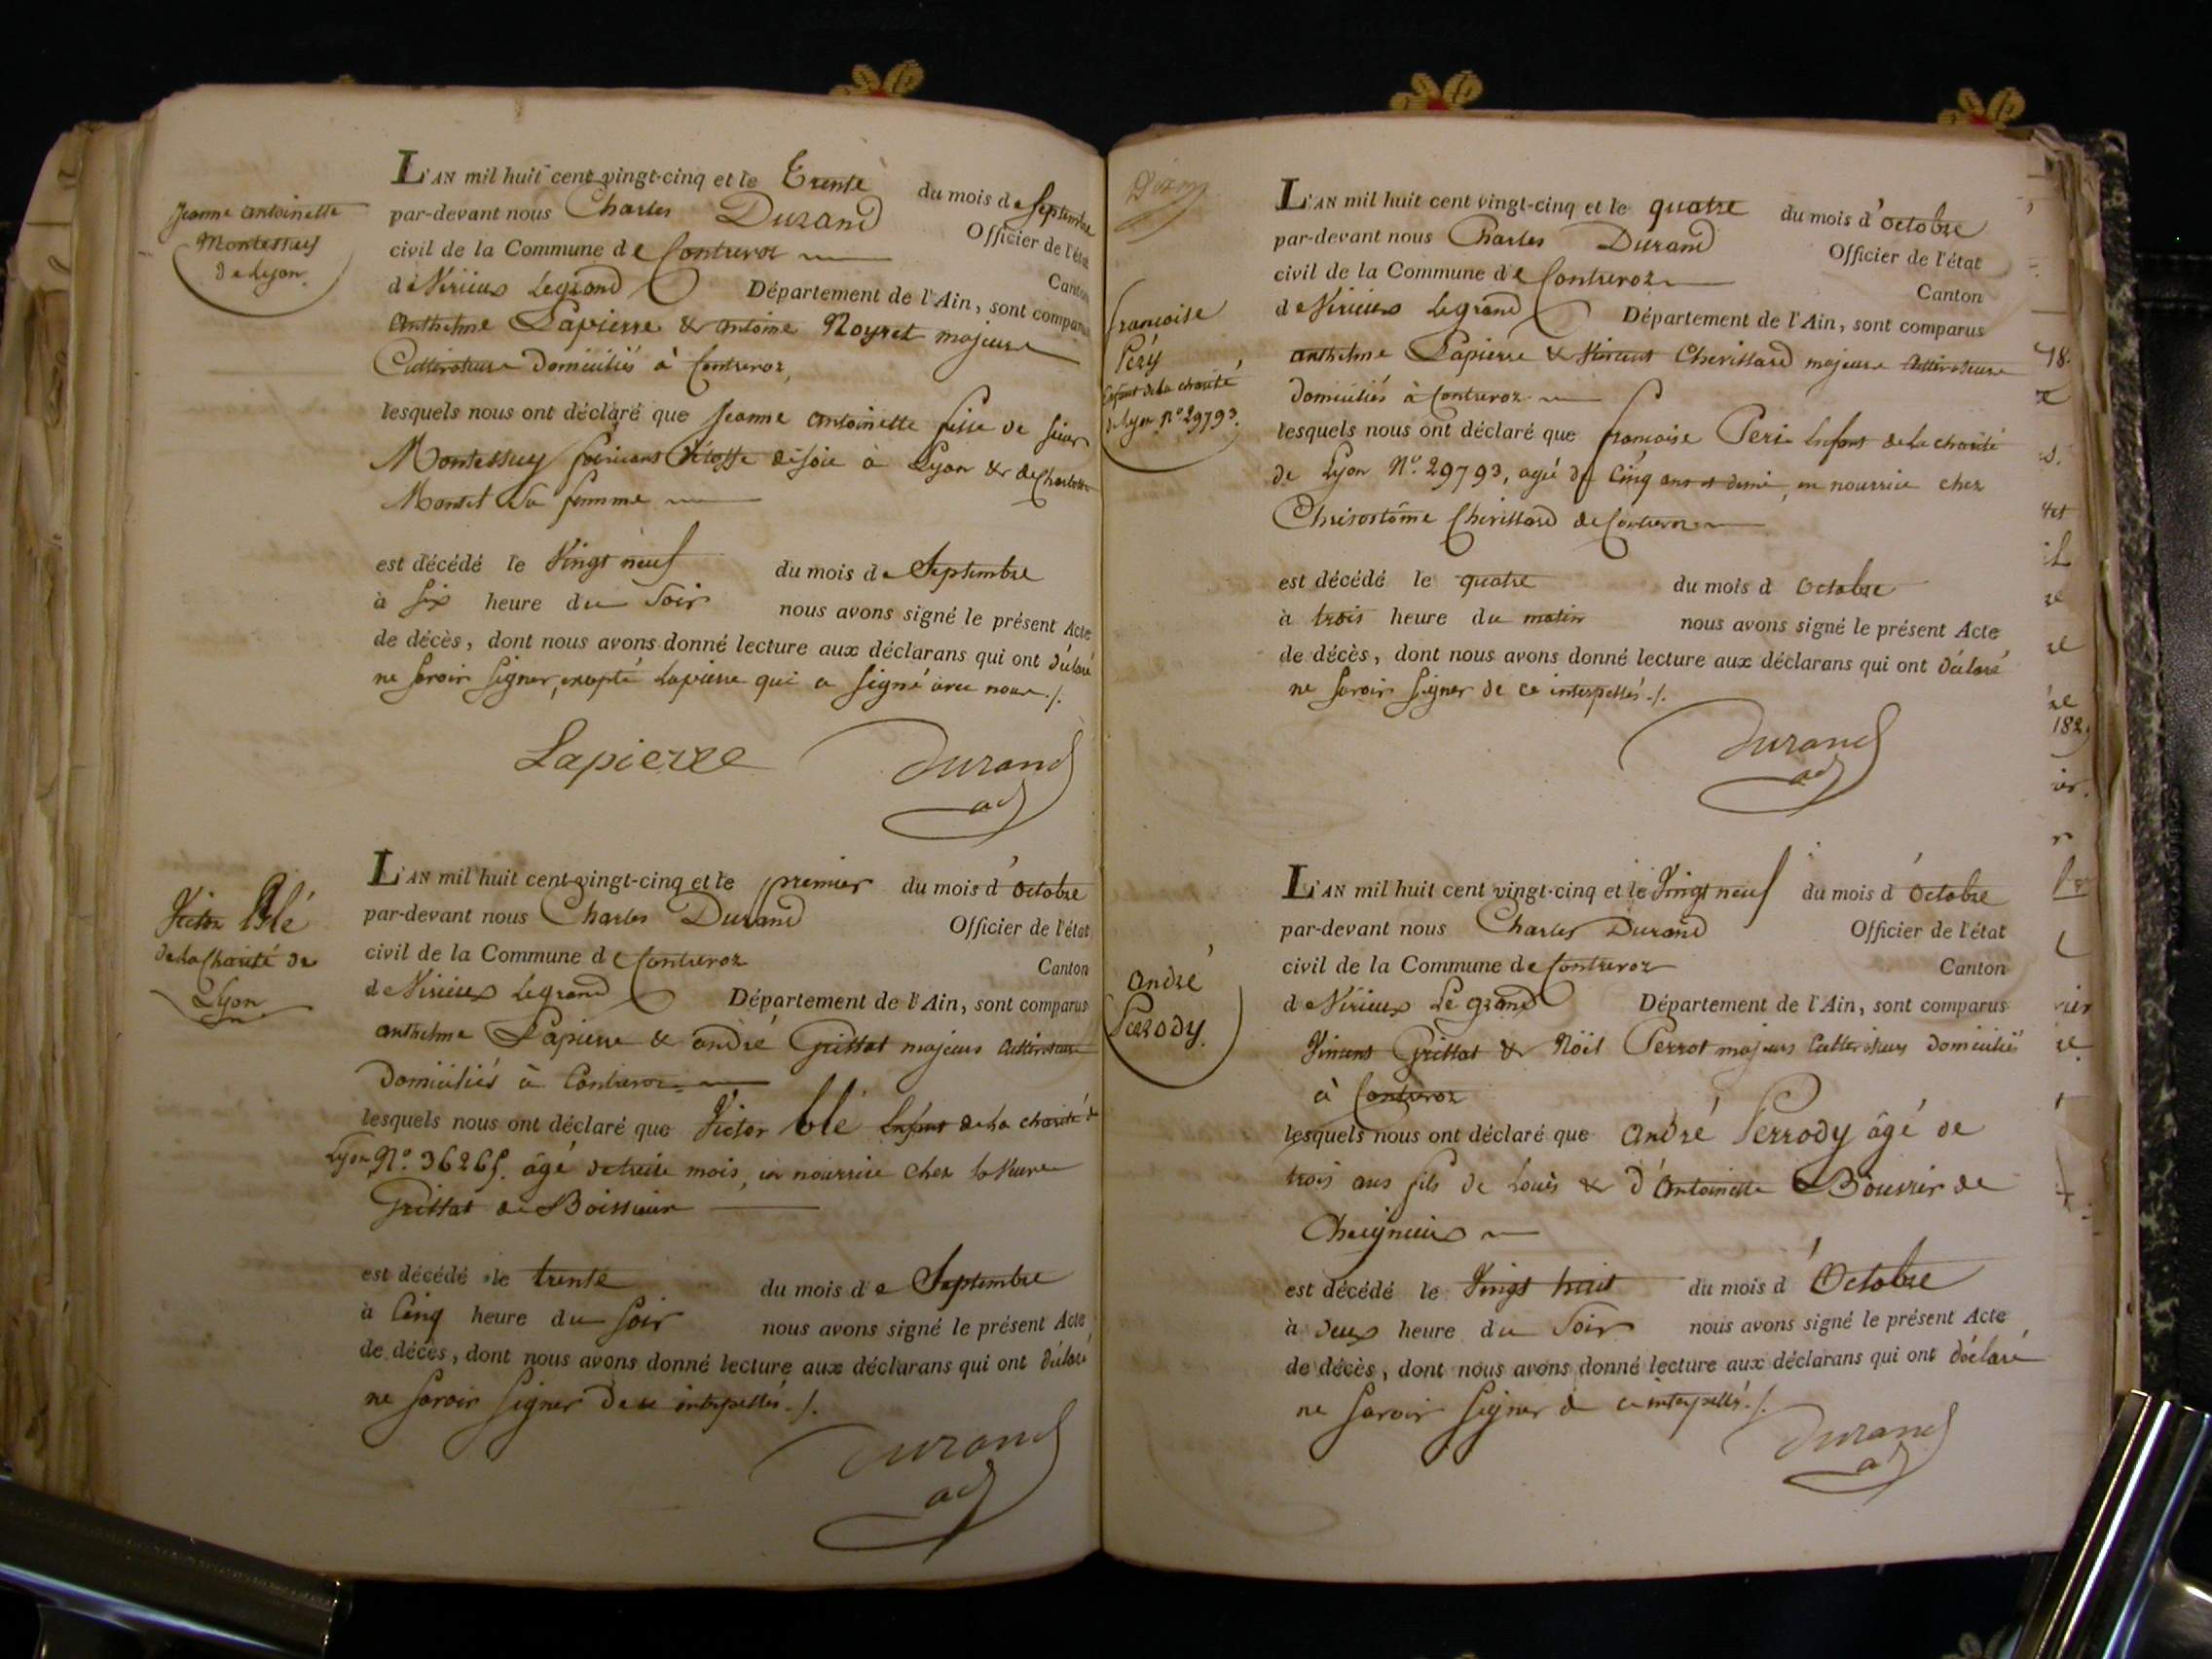 Jeanne antoinette
Montessuy
de Lyon.
L'AN mil huit cent vingt-cinq et le Trente du mois de Septembre
par-devant nous Charles Durand Officier de l'état
civil de la Commune de Contrevoz Canton
de Virieux Legrand Département de l'Ain, sont comparus
anthelme Lapierre & antoine Noyret majeurs
Cultivateurs domiciliés à Contrevoz,
lesquels nous ont déclaré que Jeanne antoinette fille de sieur
Montessuy fabricant d'étoffe de soie à Lyon & de Charlotte
sa femme
est décédé le Vingt neuf du mois de Septembre
à six heure du Soir nous avons signé le présent Acte
de décès, dont nous avons donné lecture aux déclarans qui ont déclaré
ne savoir signer, excepté Lapierre qui a signé avec nous ./.
Lapierre Durand
ad
Victor Blé
de la Charité de
Lyon
L'AN mil huit cent vingt-cinq et le premier du mois d'Octobre
par-devant nous Charles Durand Officier de l'état
civil de la Commune de Contrevoz Canton
de Virieux Legrand Département de l'Ain, sont comparus
anthelme Lapierre & andré Grillat majeurs Cultivateurs
Domiciliés à Contrevoz
lesquels nous ont déclaré que Victor blé Enfant de la charité de
Lyon N.o 36265. âgé de treize mois, en nourrice chez la veuve
Grillat de Boissieux
est décédé le trente du mois de Septembre
à Cinq heure du soir nous avons signé le présent Acte
de décès, dont nous avons donné lecture aux déclarans qui ont déclaré
ne savoir signer de ce interpellés ./.
Durand
ad
francoise
Péry
Enfant de la charité
de Lyon N.o 29793.
L'AN mil huit cent vingt-cinq et le quatre du mois d'octobre
par-devant nous Charles Durand Officier de l'état
civil de la Commune de Contrevoz Canton
de Virieux Legrand Département de l'Ain, sont comparus
anthelme Lapierre & Vincent Cherillard majeurs Cultivateurs
domiciliés à Contrevoz
lesquels nous ont déclaré que francoise Peri Enfant de la charité
de Lyon N.o 29793, agé de Cinq ans et demi, en nourrice chez
Chrisostôme Cherillard de Contrevoz
est décédé le quatre du mois d Octobre
à trois heure du matin nous avons signé le présent Acte
de décès, dont nous avons donné lecture aux déclarans qui ont déclaré
ne savoir signer de ce interpellés ./.
Durand
ad
André
Perrody.
L'AN mil huit cent vingt-cinq et le Vingt neuf du mois d'Octobre
par-devant nous Charles Durand Officier de l'état
civil de la Commune de Contrevoz Canton
de Virieux Le grand Département de l'Ain, sont comparus
Vincent Grillat & Nöel Perrot majeurs Cultivateurs domiciliés
à Contrevoz
lesquels nous ont déclaré que André Perrody âgé de
trois ans fils de Louis & d'Antoinette Bouvier de
Cheignieux
est décédé le Vingt huit du mois d'Octobre
à deux heure du Soir nous avons signé le présent Acte
de décès, dont nous avons donné lecture aux déclarans qui ont déclaré
ne savoir signer de ce interpellés ./.
Durand
a